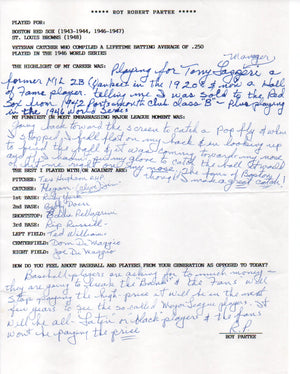 ***** ROY ROBERT PARTEE *****
PLAYED FOR:
BOSTON RED SOX (1943-1944, 1946-1947)
ST. LOUIS BROWNS (1948)
VETERAN CATCHER WHO COMPILED A LIFETIME BATTING AVERAGE OF .250
PLAYED IN THE 1946 WORLD SERIES
Manager
THE HIGHLIGHT OF MY CAREER WAS: Playing for Tony Lazzeri a
former M/L 2B (Yankees in the 1920's & now a Hall
of Fame player. telling me I was sold to the Red
Sox from 1942 Portsmouth Club class "B" - Plus playing
in the 1946 World Series
MY FUNNIEST OR MOST EMBARRASSING MAJOR LEAGUE MOMENT WAS:
Going back toward the screen to catch a Pop fly & when
I I fell flat on my back & in looking up
to find the ball & it was coming toward my nose
and I had my glove to catch the ball
my nose. The fans of Boston
a great catch!
THE BEST I PLAYED WITH OR AGAINST ARE:
PITCHER: Tex Hughson
CATCHER: Hegan
1st BASE: Rudy York
2nd BASE: Bob Doerr
SHORTSTOP: Eddie Pellagrini
3rd BASE: Rip Russell
LEFT FIELD: Ted Williams
CENTERFIELD: Dom DiMaggio
RIGHT FIELD: Joe DiMaggio
HOW DO YOU FEEL ABOUT BASEBALL AND PLAYERS FROM YOUR GENERATION AS OPPOSED TO TODAY?
Baseball players are asking for to much money -
they are going to break the Bank & the fans will
stop paying the high price it will be in the next
few years to see the so called Major League player. It
will be all "Latin" or black players & the fans
won't be paying the price
R.P.
ROY PARTEE